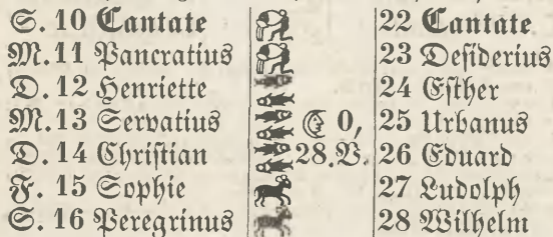 S. 10 Cantate 22 Cantate
M. 11 Pancratius 23 Desiderius
D. 12 Henriette 24 Esther
M. 13 Servatius 0, 25 Urbanus
D. 14 Christian 28. V. 26 Eduard
F. 15 Sophie 27 Ludolph
S. 16 Peregrinus 28 Wilhelm